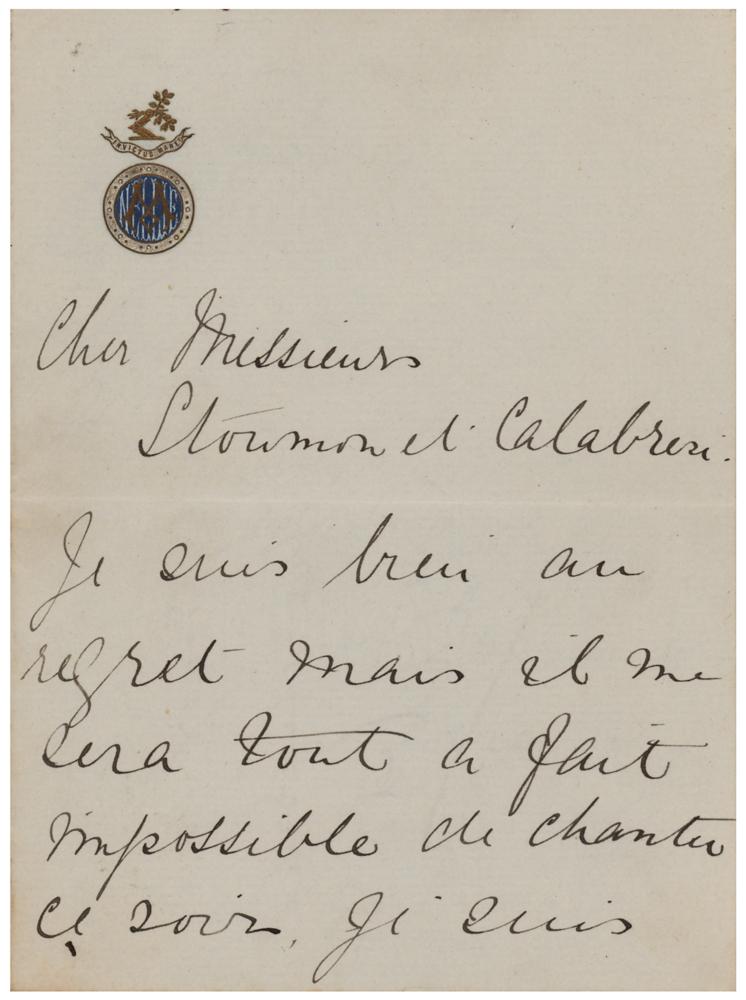 INVICTUS MANEO
Cher Messieurs
Stoumon et Calabresi.
Je suis bien au
regret mais il me
sera tout a fait
impossible de chanter
ce soir, Je suis